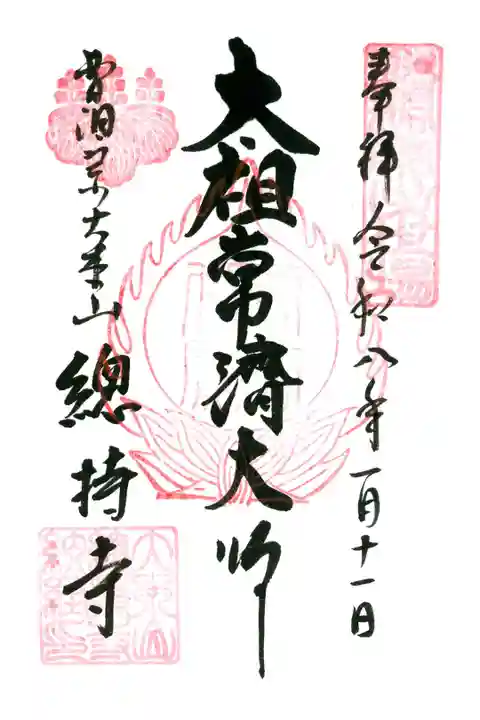 奉拝 令和八年一月十一日
太祖常濟大師
曹洞宗大本山總持寺